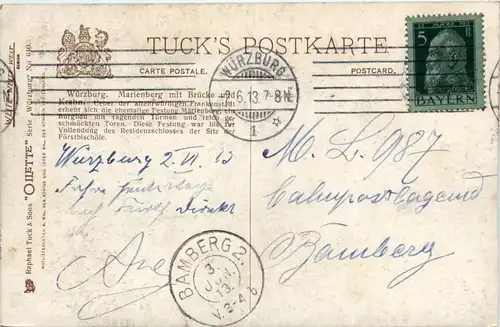 TUCK'S POSTKARTE
CARTE POSTALE.
POSTCARD.
Würzburg. Marienberg mit Brücke und
Krahn. Ueber der altehrwürdigen Frankenstadt
erhebt sich die ehemalige Festung Marienberg, ein
Burgbau mit ragenden Türmen und reich ge-
schmückten Toren. Diese Festung war bis zur
Vollendung des Residenzschlosses der Sitz der
Fürstbischöfe.
Raphael Tuck & Sons "OILETTE" Serie Würzburg No.
WÜRZBURG
2.6.13.7-8N.
1
5
BAYERN
Würzburg 2. VI. 13
Fahre
nach Fürth Direkt
M. L. 987
Bahnpostlagernd
Bamberg
BAMBERG 2.
3.
JUN.
13.
V. 3-4
b